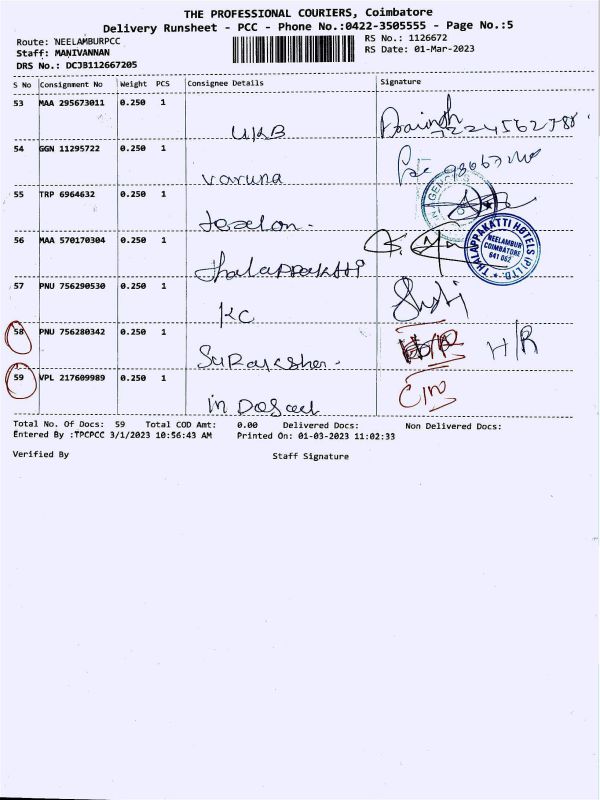 THE PROFESSIONAL COURIERS, Coimbatore
Delivery Runsheet - PCC - Phone No.:0422-3505555 - Page No.:5
Route: NEELAMBURPCC
RS No.: 1126672
Staff: MANIVANNAN
RS Date: 01-Mar-2023
DRS No.: DCJB112667205
S No Consignment No Weight PCS Consignee Details Signature
53 MAA 295673011 0.250 1 UKB
54 GGN 11295722 0.250 1 Varuna
55 TRP 6964632 0.250 1
56 MAA 570170304 0.250 1 thalappakatti
THALAPPAKATTI HOTELS (P) LTD.
NEELAMBUR
COIMBATORE
641 062
57 PNU 756290530 0.250 1 KC
58 PNU 756280342 0.250 1 H/R
59 VPL 217609989 0.250 1
Total No. Of Docs: 59 Total COD Amt: 0.00 Delivered Docs: Non Delivered Docs:
Entered By :TPCPCC 3/1/2023 10:56:43 AM Printed On: 01-03-2023 11:02:33
Verified By Staff Signature